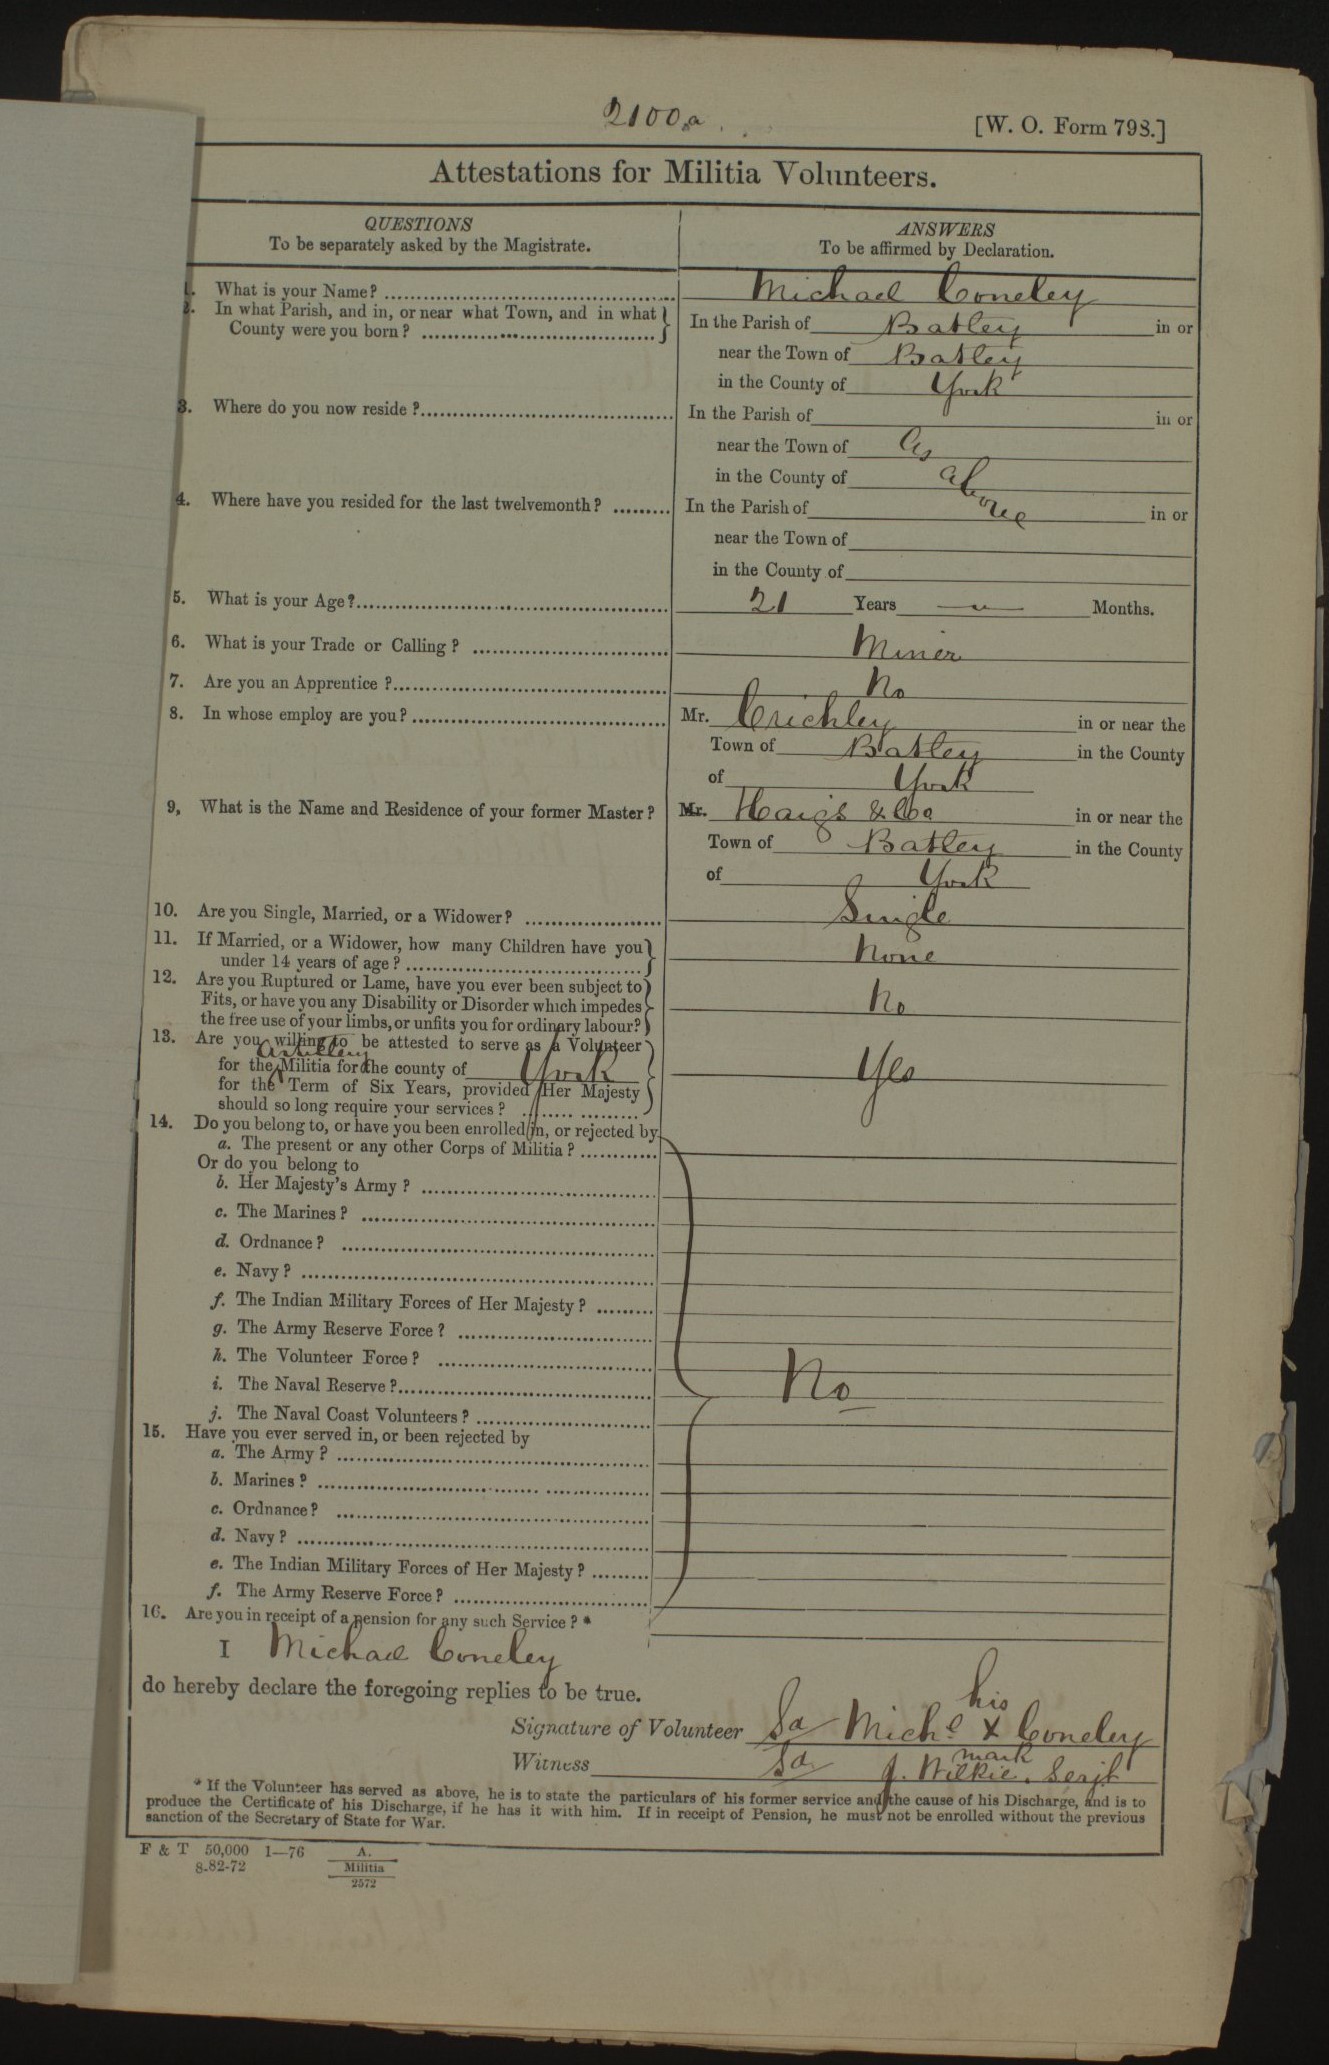 2100a
[W. O. Form 793.]
Attestations for Militia Volunteers.
QUESTIONS
To be separately asked by the Magistrate.
ANSWERS
To be affirmed by Declaration.
1. What is your Name? Michael Coneley
2. In what Parish, and in, or near what Town, and in what County were you born?
In the Parish of Batley in or
near the Town of Batley
in the County of York
3. Where do you now reside?
In the Parish of in or
near the Town of As
in the County of above
4. Where have you resided for the last twelvemonth?
In the Parish of in or
near the Town of
in the County of
5. What is your Age? 21 Years — " — Months.
6. What is your Trade or Calling? Miner
7. Are you an Apprentice? No
8. In whose employ are you? Mr. Crichley in or near the
Town of Batley in the County
of York
9, What is the Name and Residence of your former Master? Mr. Haigs & Co in or near the
Town of Batley in the County
of York
10. Are you Single, Married, or a Widower? Single
11. If Married, or a Widower, how many Children have you
under 14 years of age? None
12. Are you Ruptured or Lame, have you ever been subject to
Fits, or have you any Disability or Disorder which impedes
the free use of your limbs, or unfits you for ordinary labour? No
13. Are you willing to be attested to serve as a Volunteer
for the Artillery Militia for the county of York
for the Term of Six Years, provided Her Majesty
should so long require your services? Yes
14. Do you belong to, or have you been enrolled in, or rejected by
a. The present or any other Corps of Militia?
Or do you belong to
b. Her Majesty's Army?
c. The Marines?
d. Ordnance?
e. Navy?
f. The Indian Military Forces of Her Majesty?
g. The Army Reserve Force?
h. The Volunteer Force?
i. The Naval Reserve? No
j. The Naval Coast Volunteers?
15. Have you ever served in, or been rejected by
a. The Army?
b. Marines?
c. Ordnance?
d. Navy?
e. The Indian Military Forces of Her Majesty?
f. The Army Reserve Force?
16. Are you in receipt of a pension for any such Service? *
I Michael Coneley
do hereby declare the foregoing replies to be true.
his
Signature of Volunteer Sd Michl X Coneley
mark
Witness Sd J. Wilkie. Serjt
* If the Volunteer has served as above, he is to state the particulars of his former service and the cause of his Discharge, and is to
produce the Certificate of his Discharge, if he has it with him. If in receipt of Pension, he must not be enrolled without the previous
sanction of the Secretary of State for War.
F & T 50,000 1—76
8-82-72
A.
Militia
2572